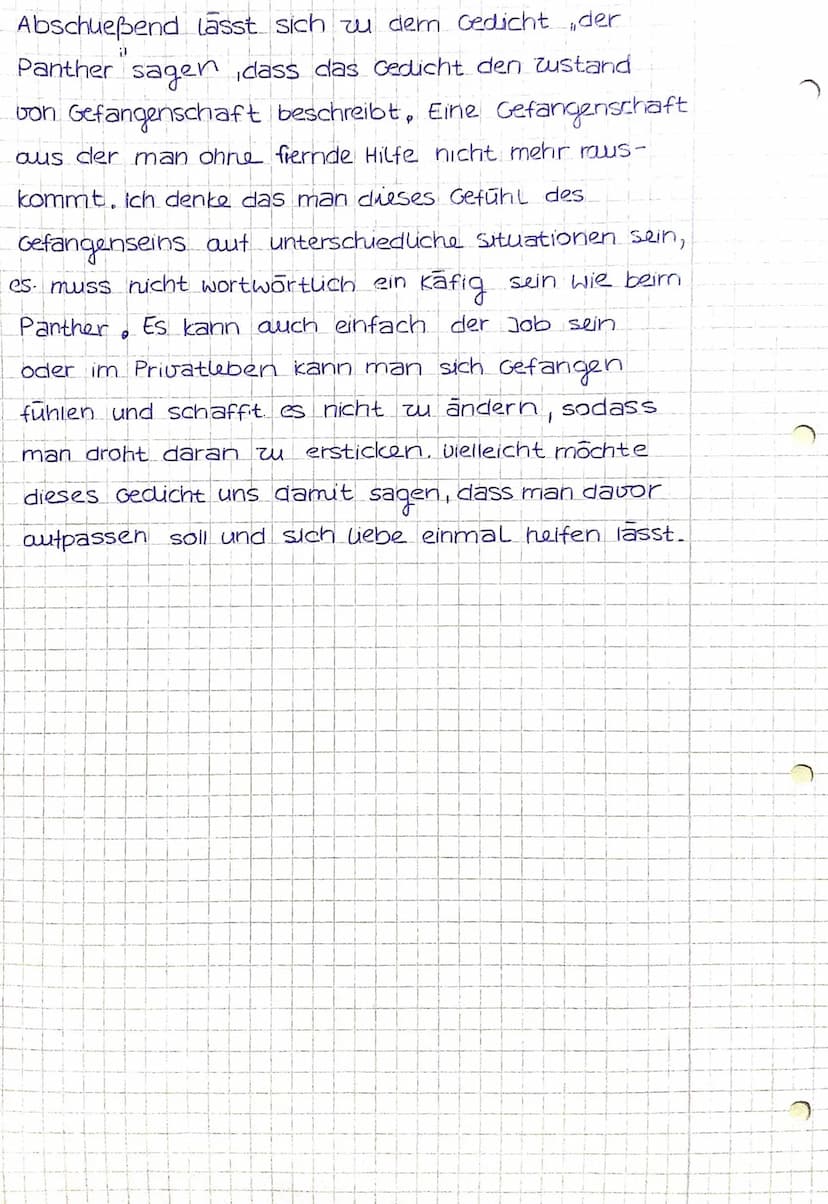 Abschließend lässt sich zu dem Gedicht „der
Panther" sagen, dass das Gedicht den Zustand
von Gefangenschaft beschreibt. Eine Gefangenschaft
aus der man ohne fremde Hilfe nicht mehr raus-
kommt. Ich denke das man dieses Gefühl des
Gefangenseins auf unterschiedliche Situationen sein,
es muss nicht wortwörtlich ein Käfig sein wie beim
Panther. Es kann auch einfach der Job sein
oder im Privatleben kann man sich Gefangen
fühlen und schafft es nicht zu ändern, sodass
man droht daran zu ersticken. Vielleicht möchte
dieses Gedicht uns damit sagen, dass man davor
aufpassen soll und sich liebe einmal helfen lässt.